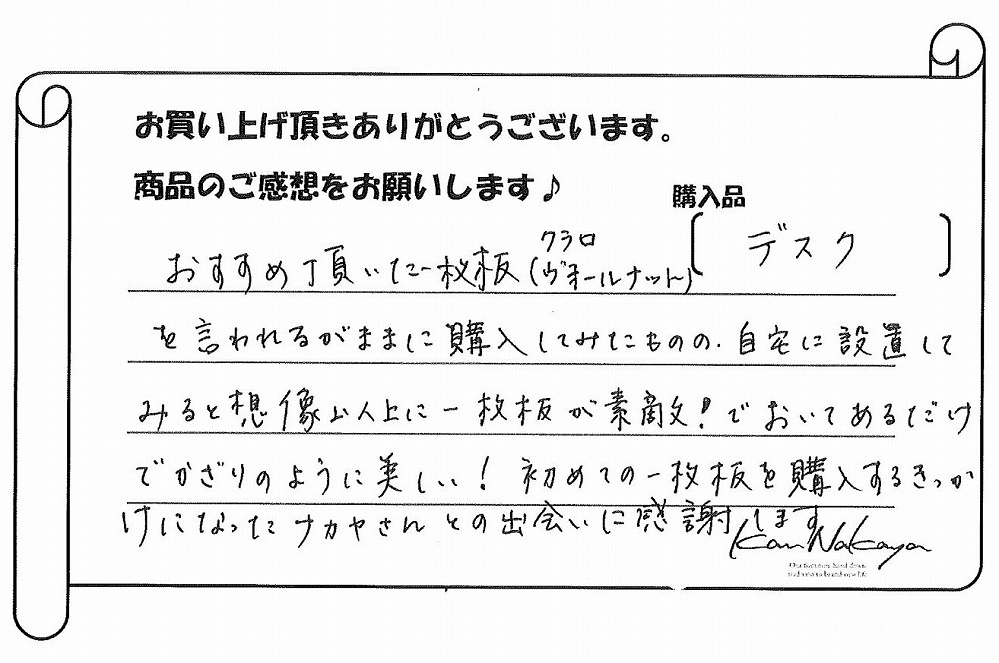 お買い上げ頂きありがとうございます。
商品のご感想をお願いします♪
購入品
デスク
クラロ
おすすめ頂いた一枚板(ウォールナット)
を言われるがままに購入してみたものの、自宅に設置して
みると想像以上に一枚板が素敵!でおいてあるだけ
でかざりのように美しい!初めての一枚板を購入するきっか
けになったナカヤさんとの出会いに感謝します
Kan Nakaya